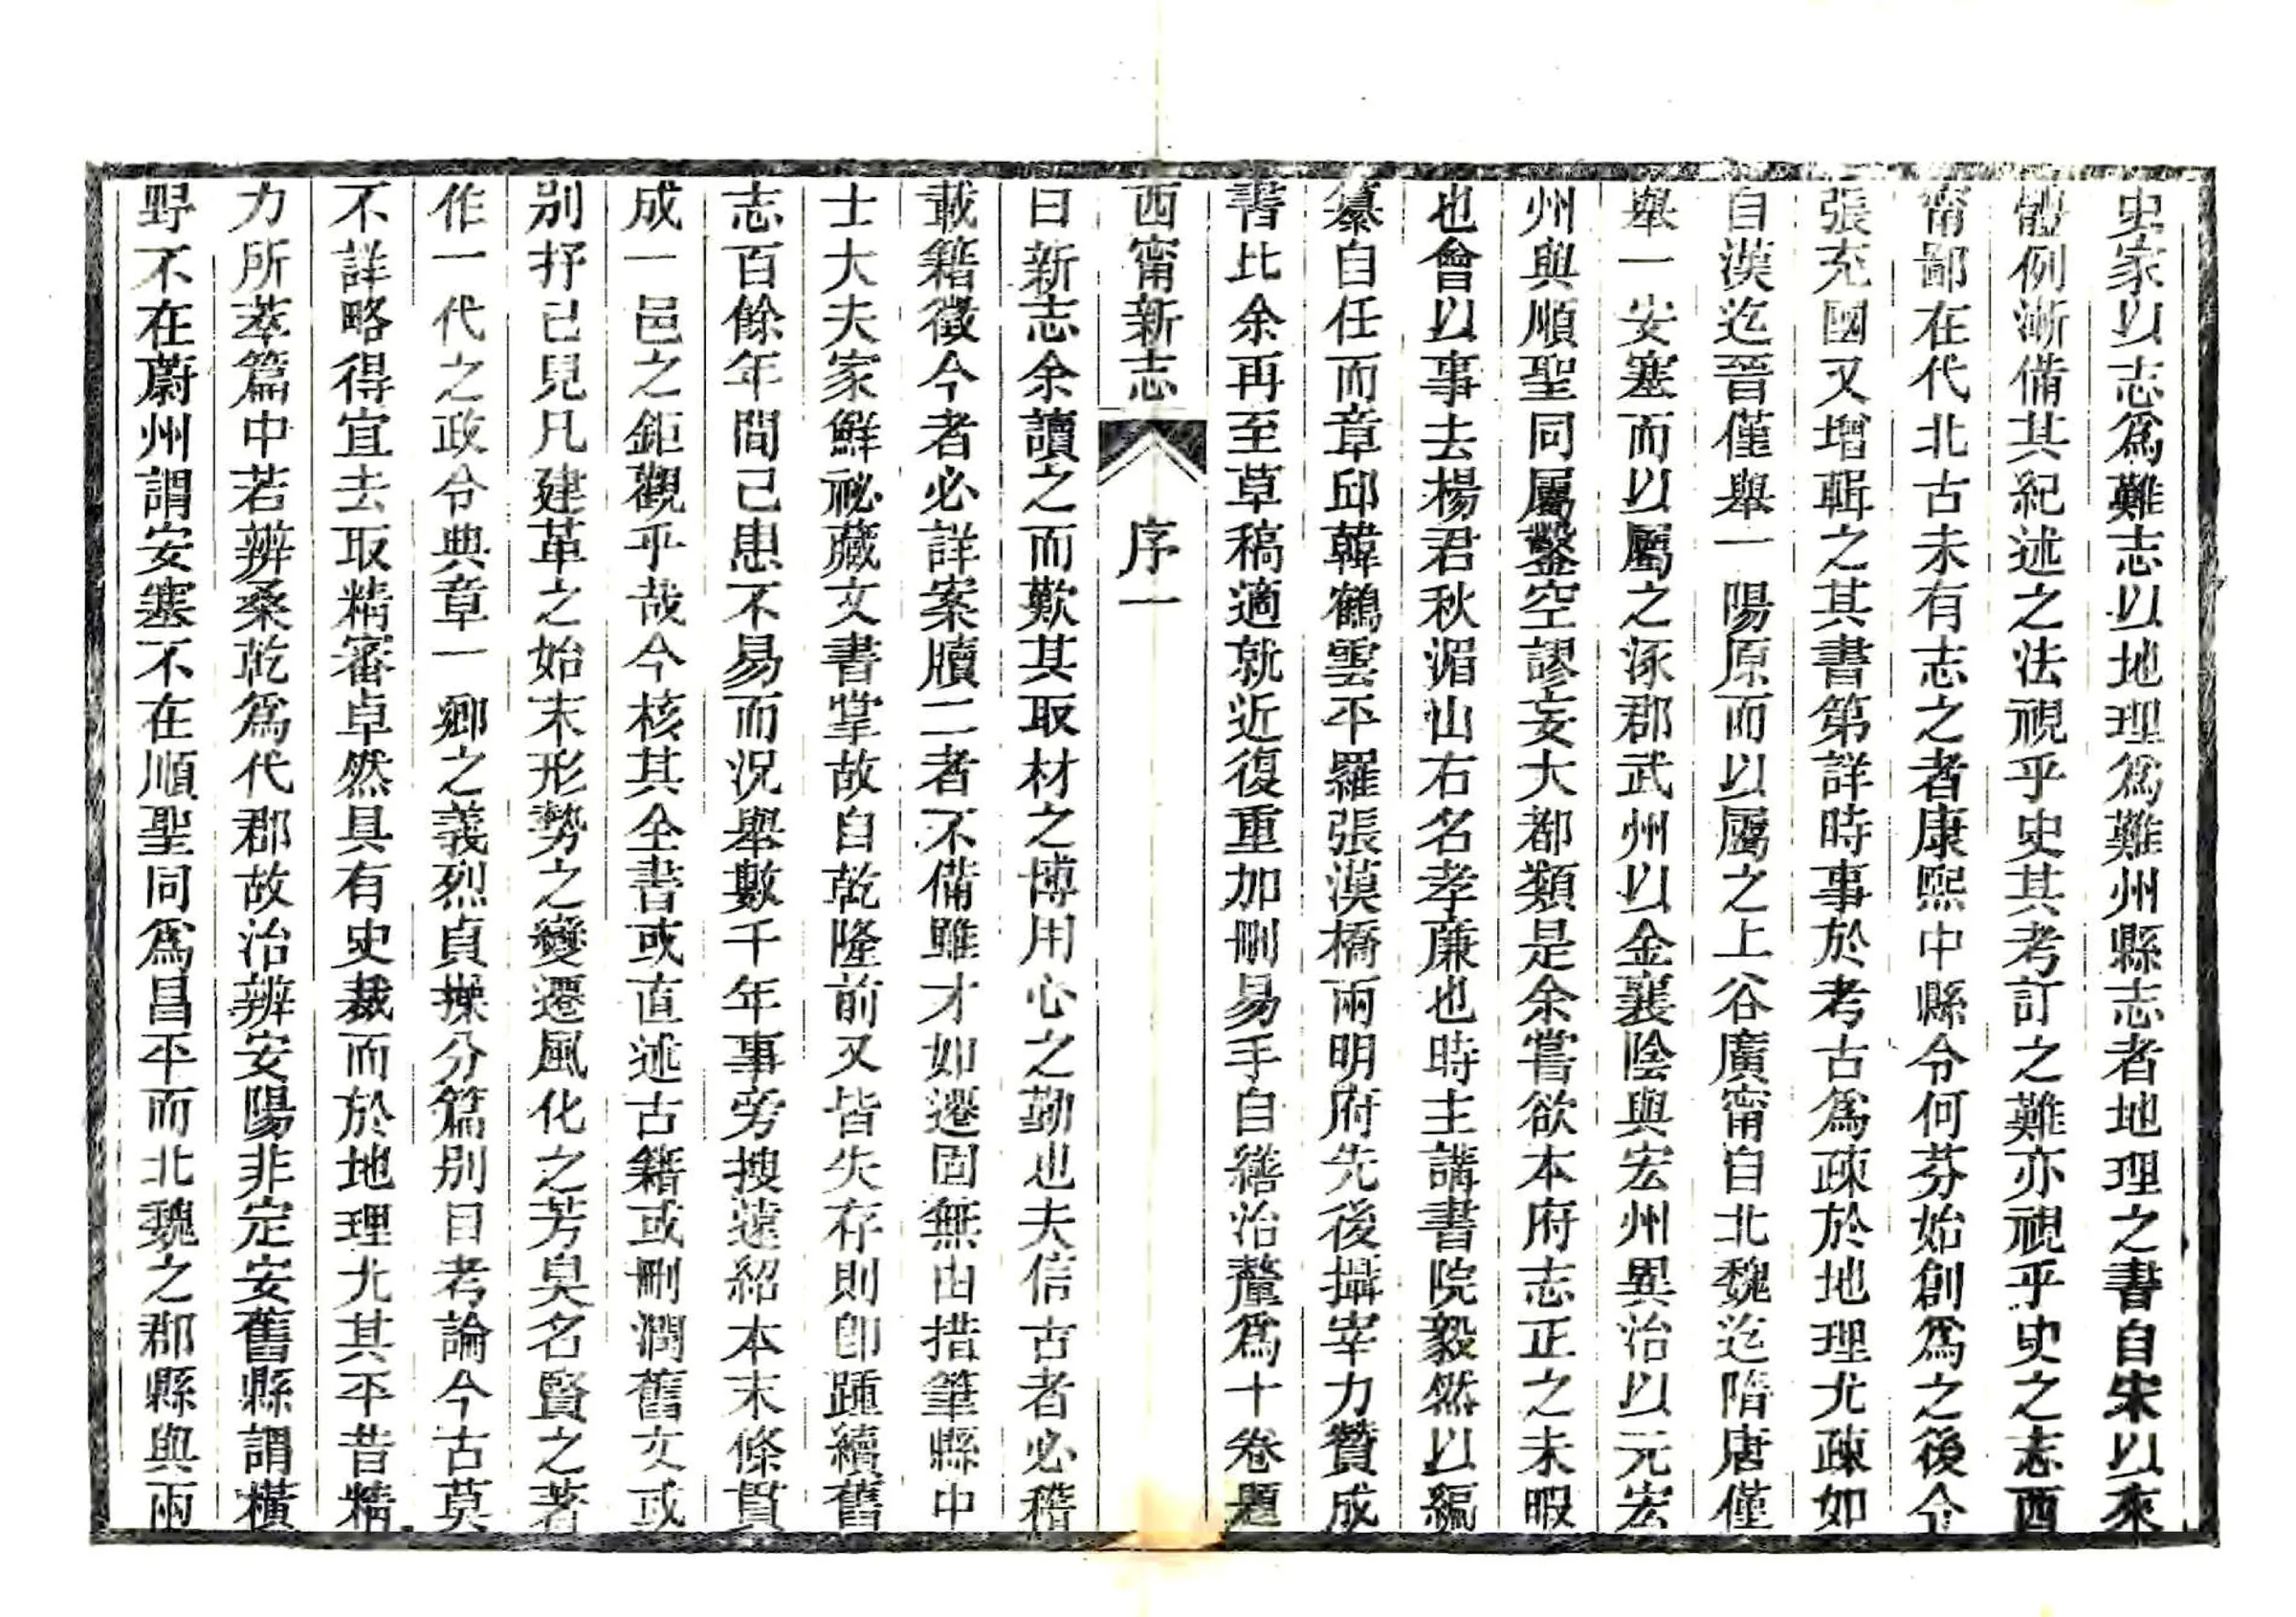 史家以志爲難志以地理爲難州縣志者地理之書自宋以來
體例漸備其紀述之法視乎史其考訂之難亦視乎史之志西
甯鄙在代北古未有志之者康熙中縣令何芬始創爲之後令
張充國又增輯之其書第詳時事於考古爲疎於地理尤疎如
自漢迄晉僅舉一陽原而以屬之上谷廣甯自北魏迄隋唐僅
舉一安塞而以屬之涿郡武州以金襄陰與宏州異治以元宏
州與順聖同屬鑿空謬妄大都類是余嘗欲本府志正之未暇
也會以事去楊君秋湄山右名孝廉也時主講書院毅然以編
纂自任而章邱韓鶴雲平羅張漢橋兩明府先後攝宰力贊成
書比余再至草稿適就近復重加刪易手自繕治釐爲十卷題
西甯新志 序 一
曰新志余讀之而歎其取材之博用心之勤也夫信古者必稽
載籍徵今者必詳案牘二者不備雖才如遷固無由措筆縣中
士大夫家鮮祕藏文書掌故自乾隆前又皆失存則卽踵續舊
志百餘年間已患不易而況舉數千年事旁搜遠紹本末條貫
成一邑之鉅觀乎哉今核其全書或直述古籍或刪潤舊文或
別抒己見凡建革之始末形勢之變遷風化之芳臭名賢之著
作一代之政令典章一鄉之義烈貞操分篇別目考論今古莫
不詳略得宜去取精審卓然具有史裁而於地理尤其平昔精
力所萃篇中若辨桑乾爲代郡故治辨安陽非定安舊縣謂橫
野不在蔚州謂安塞不在順聖同爲昌平而北魏之郡縣與兩